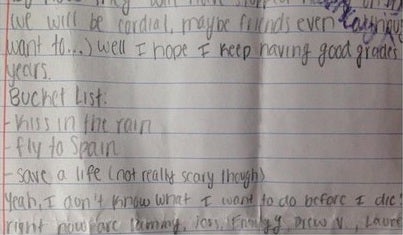 we will be cordial, maybe friends even
want to...) well I hope I keep having good grades
years.
Bucket List:
- kiss in the rain
- fly to Spain
- save a life (not really scary though)
Yeah, I don't know what I want to do before I die!
right now are Jimmy, Joss, Drew V., Laure